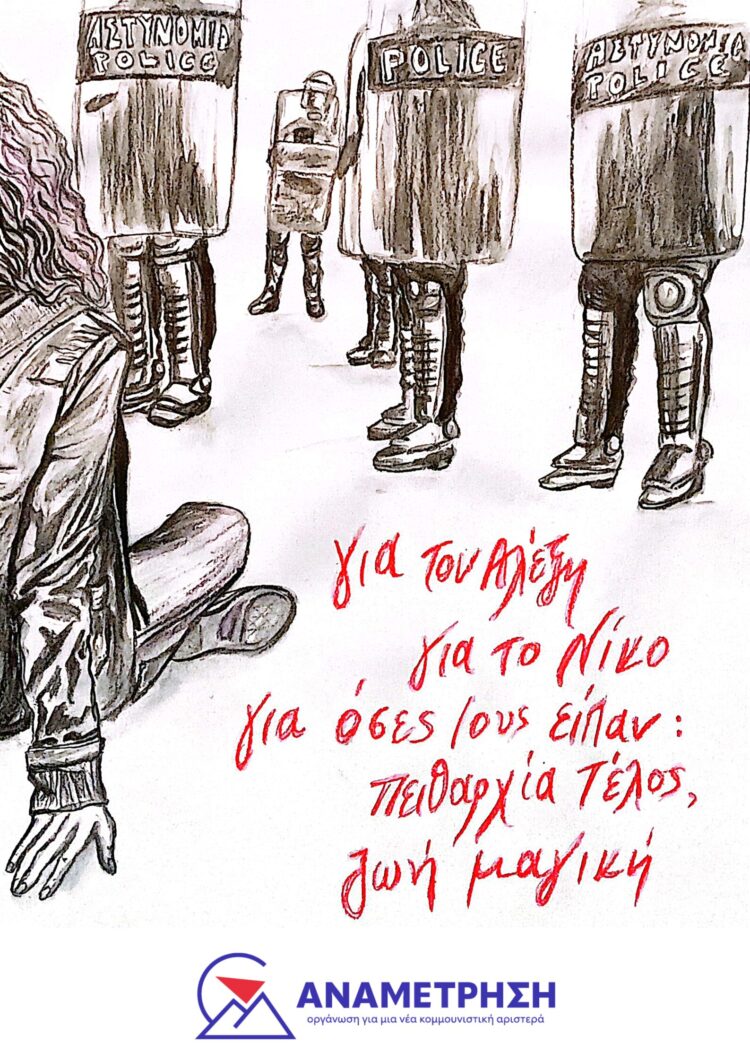 ΑΣΤΥΝΟΜΙΑ
POLICE
POLICE
ΑΣΤΥΝΟΜΙΑ
POLICE
για τον Αλέξη
για το Νίκο
για όσες/ους είπαν:
πειθαρχία τέλος,
ζωή μαγική
ΑΝΑΜΕΤΡΗΣΗ
οργάνωση για μια νέα κομμουνιστική αριστερά